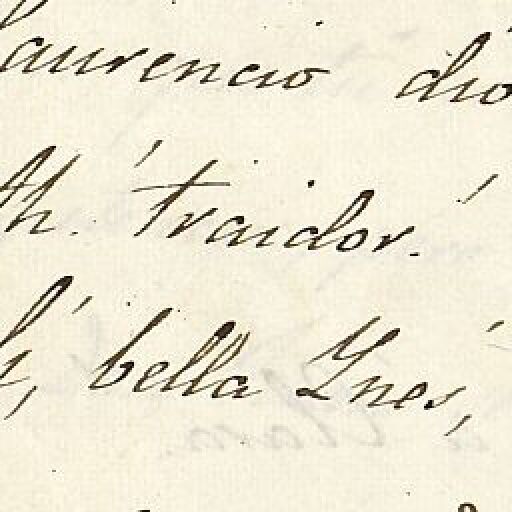 aurencio dió
Ah. ¡traidor!
bella Ynés,